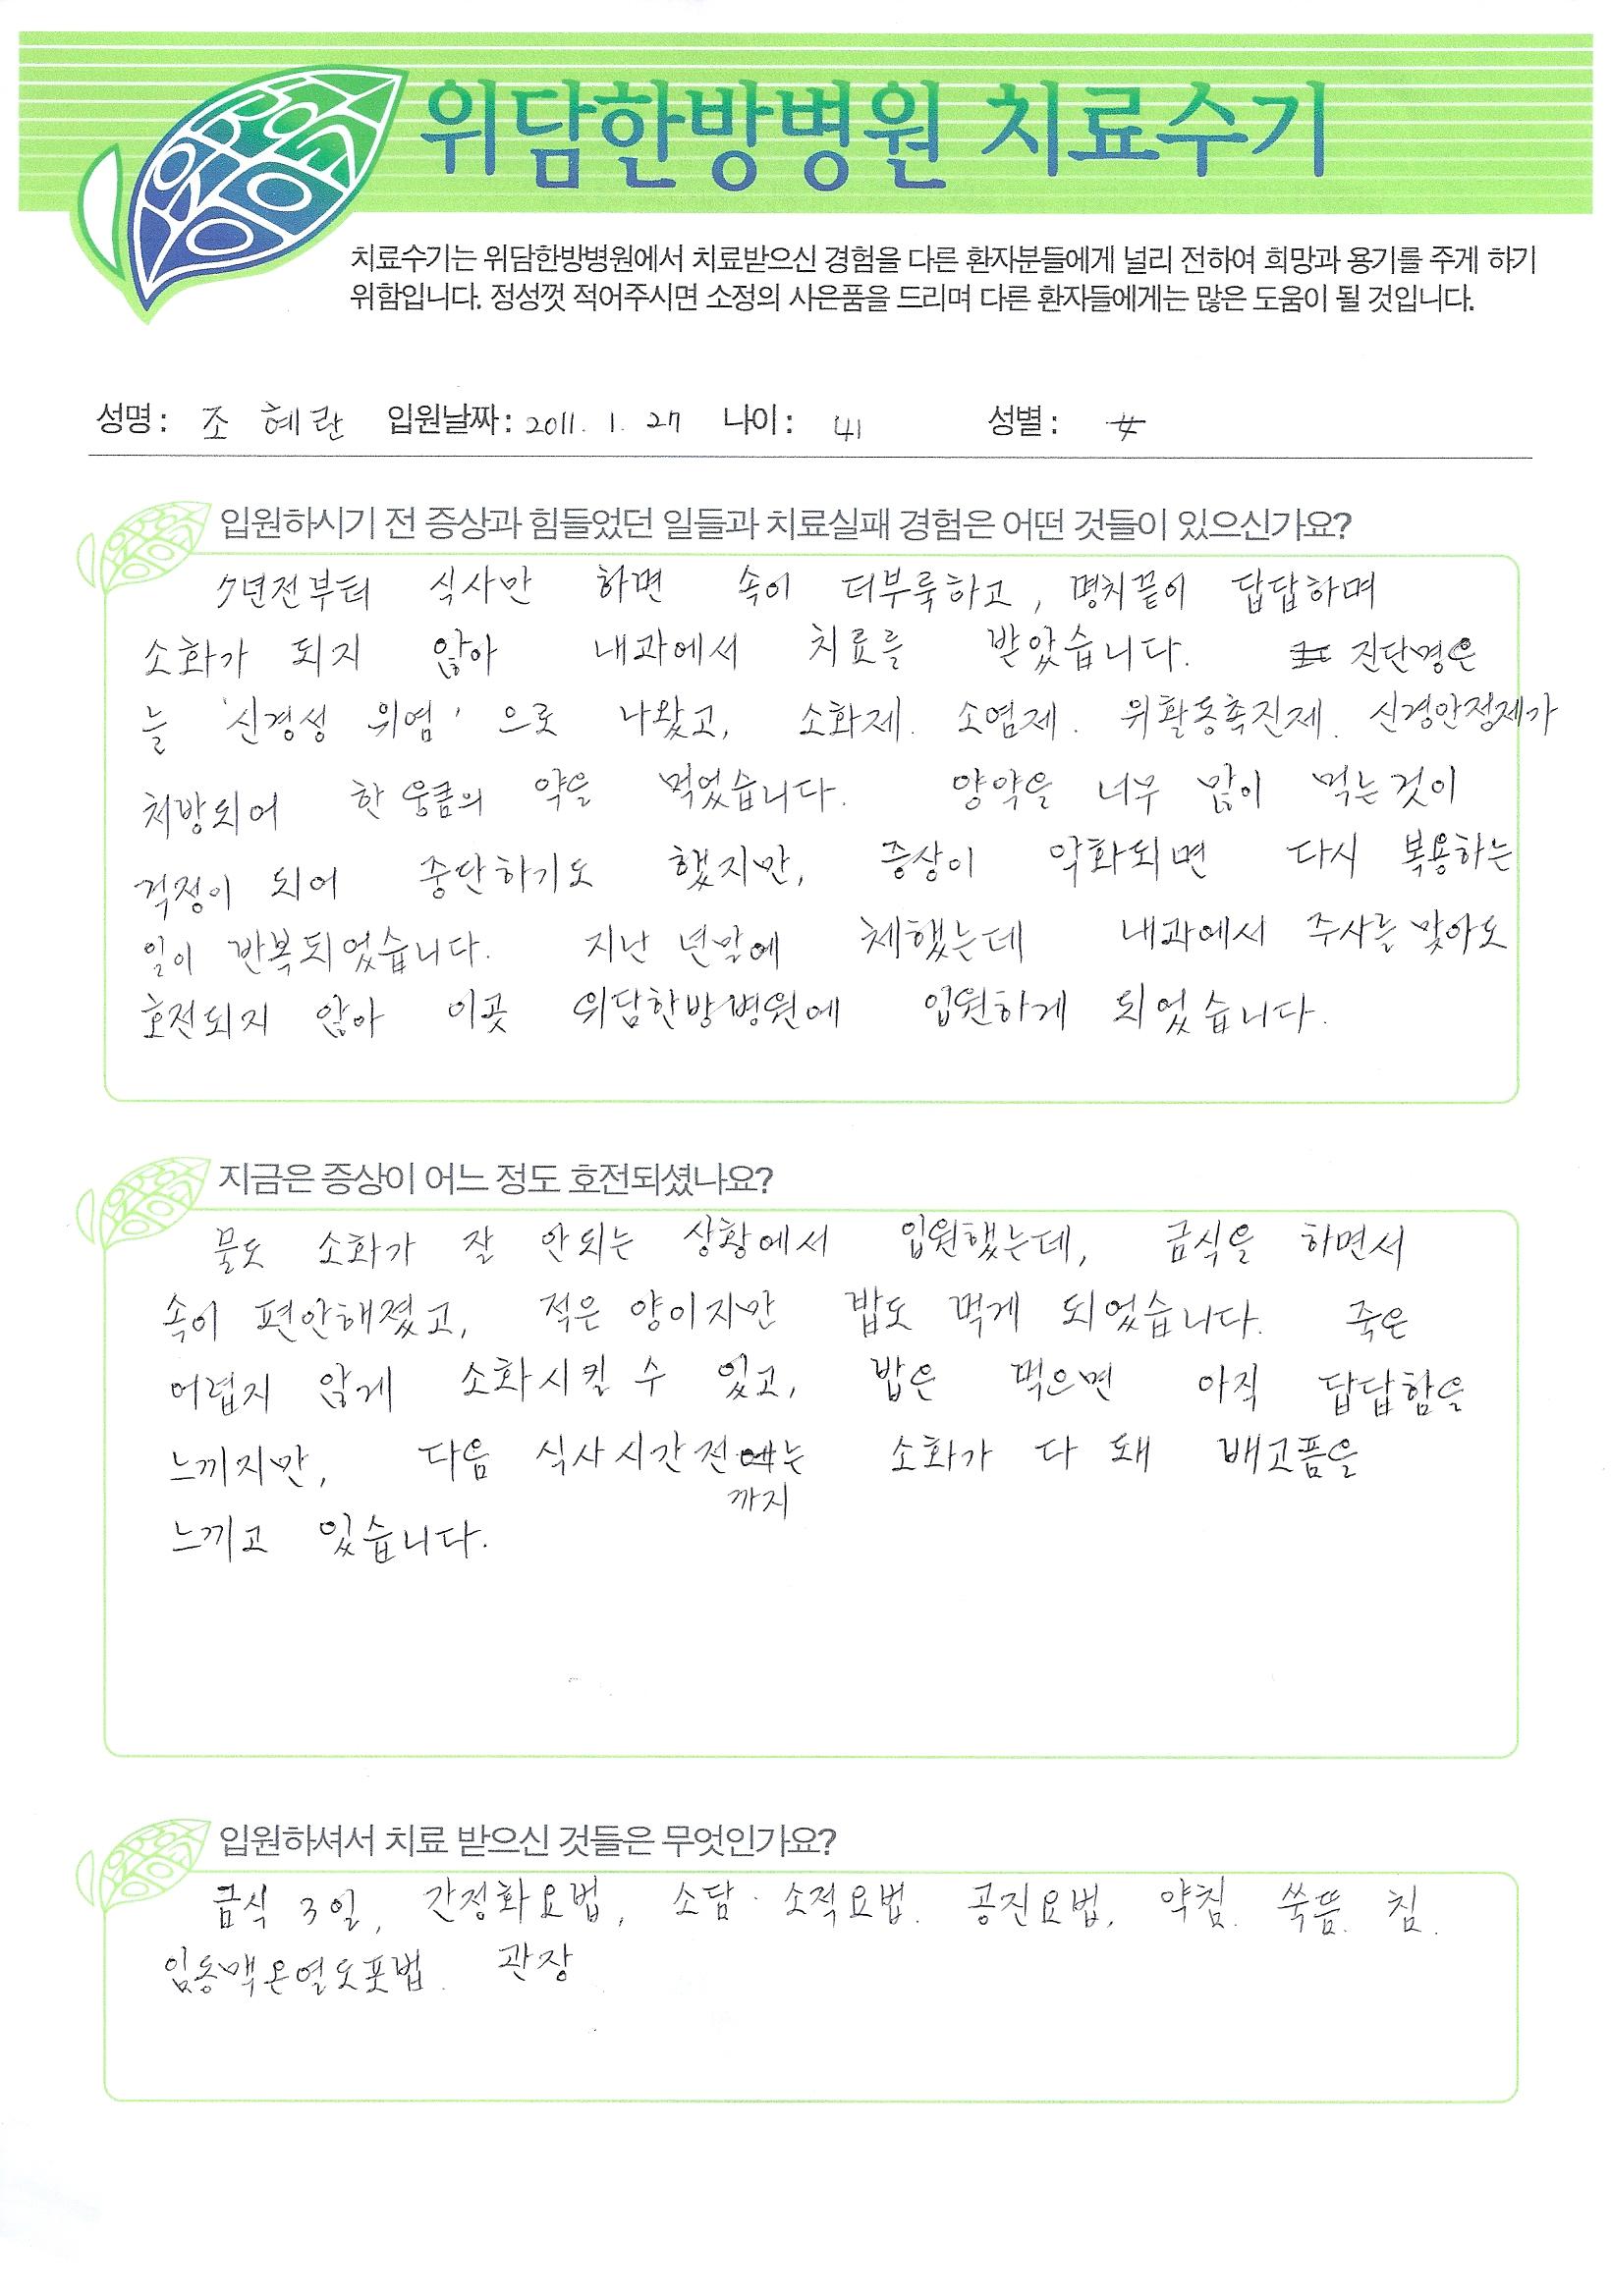 위담한방병원 치료수기
치료수기는 위담한방병원에서 치료받으신 경험을 다른 환자분들에게 널리 전하여 희망과 용기를 주게 하기
위함입니다. 정성껏 적어주시면 소정의 사은품을 드리며 다른 환자들에게는 많은 도움이 될 것입니다.
성명: 조 혜 란 입원날짜: 2011. 1. 27 나이: 41 성별: 女
입원하시기 전 증상과 힘들었던 일들과 치료실패 경험은 어떤 것들이 있으신가요?
7년전부터 식사만 하면 속이 더부룩하고, 명치끝이 답답하며
소화가 되지 않아 내과에서 치료를 받았습니다. 진단명은
늘 '신경성 위염' 으로 나왔고, 소화제. 소염제. 위활동촉진제. 신경안정제가
처방되어 한 웅큼의 약을 먹었습니다. 양약을 너무 많이 먹는것이
걱정이 되어 중단하기도 했지만, 증상이 악화되면 다시 복용하는
일이 반복되었습니다. 지난 년말에 체했는데 내과에서 주사를 맞아도
호전되지 않아 이곳 위담한방병원에 입원하게 되었습니다.
지금은 증상이 어느 정도 호전되셨나요?
물도 소화가 잘 안되는 상황에서 입원했는데, 금식을 하면서
속이 편안해졌고, 적은 양이지만 밥도 먹게 되었습니다. 죽은
어렵지 않게 소화시킬 수 있고, 밥은 먹으면 아직 답답함을
느끼지만, 다음 식사시간전까지는 소화가 다 돼 배고픔을
느끼고 있습니다.
입원하셔서 치료 받으신 것들은 무엇인가요?
금식 3일, 간정화요법, 소담·소적요법. 공진요법. 약침. 쑥뜸. 침.
임동맥온열도포법. 관장